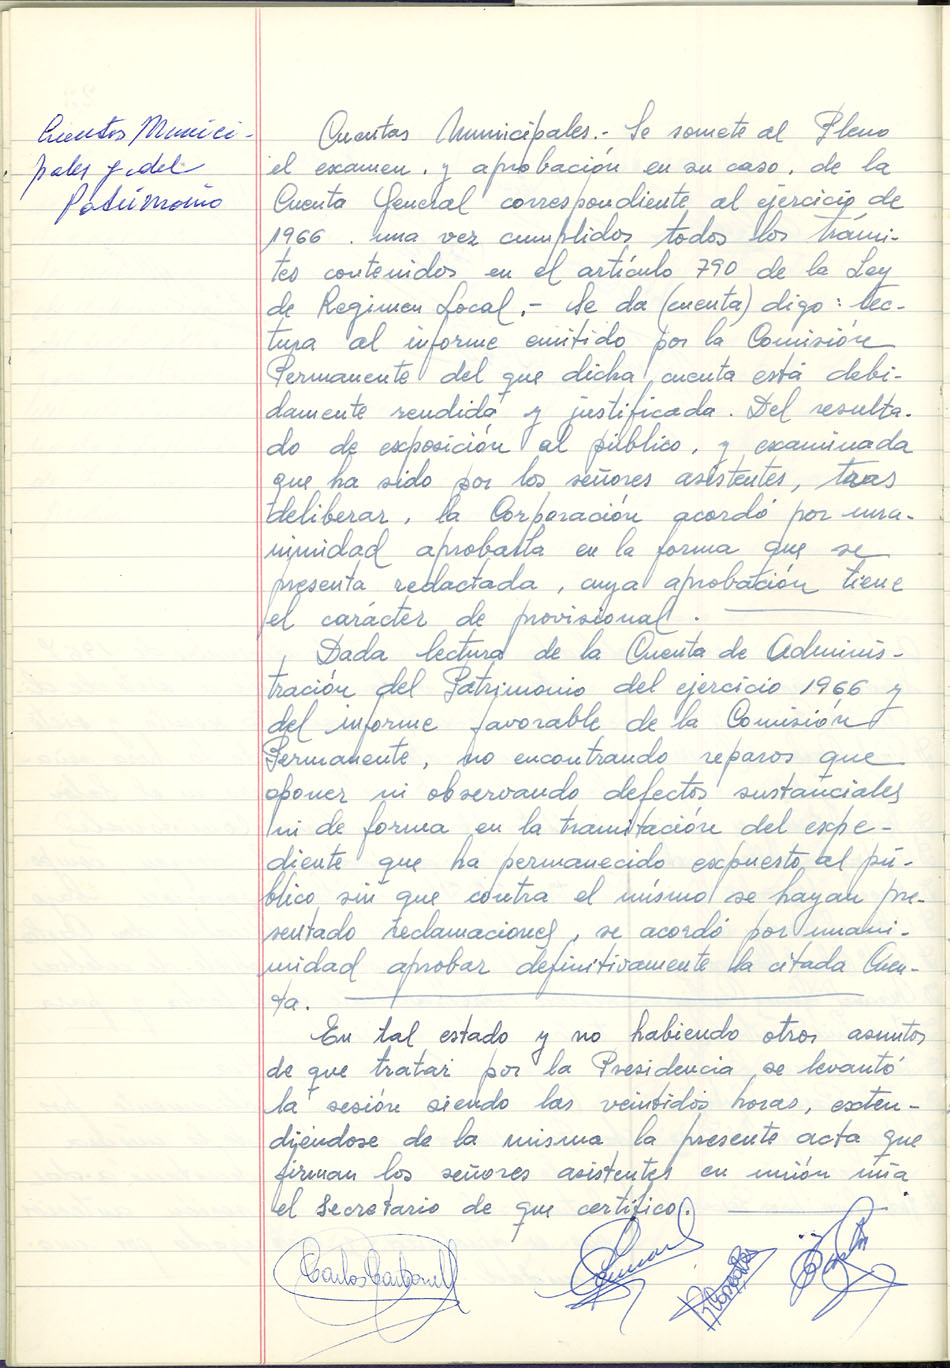 Cuentas Munici-
pales y del
Patrimonio
Cuentas Municipales.- Se somete al Pleno
el examen, y aprobación en su caso, de la
Cuenta General correspondiente al ejercicio de
1966. una vez cumplidos todos los trámi-
tes contenidos en el artículo 790 de la Ley
de Regimen Local.- Se da (cuenta) digo: lec-
tura al informe emitido por la Comisión
Permanente del que dicha cuenta está debi-
damente rendida y justificada. Del resulta-
do de exposición al público, y examinada
que ha sido por los señores asistentes, tras
deliberar, la Corporación acordó por una-
nimidad aprobarla en la forma que se
presenta redactada, cuya aprobación tiene
el carácter de provisional.
Dada lectura de la Cuenta de Adminis-
tración del Patrimonio del ejercicio 1966 y
del informe favorable de la Comisión
Permanente, no encontrando reparos que
oponer ni observando defectos sustanciales
ni de forma en la tramitación del expe-
diente que ha permanecido expuesto al pú-
blico sin que contra el mismo se hayan pre-
sentado reclamaciones, se acordó por unani-
midad aprobar definitivamente la citada Cuen-
ta.
En tal estado y no habiendo otros asuntos
de que tratar por la Presidencia se levantó
la sesión siendo las veintidós horas, exten-
diéndose de la misma la presente acta que
firman los señores asistentes en unión mía
el Secretario de que certifico.
Carlos Carbonell